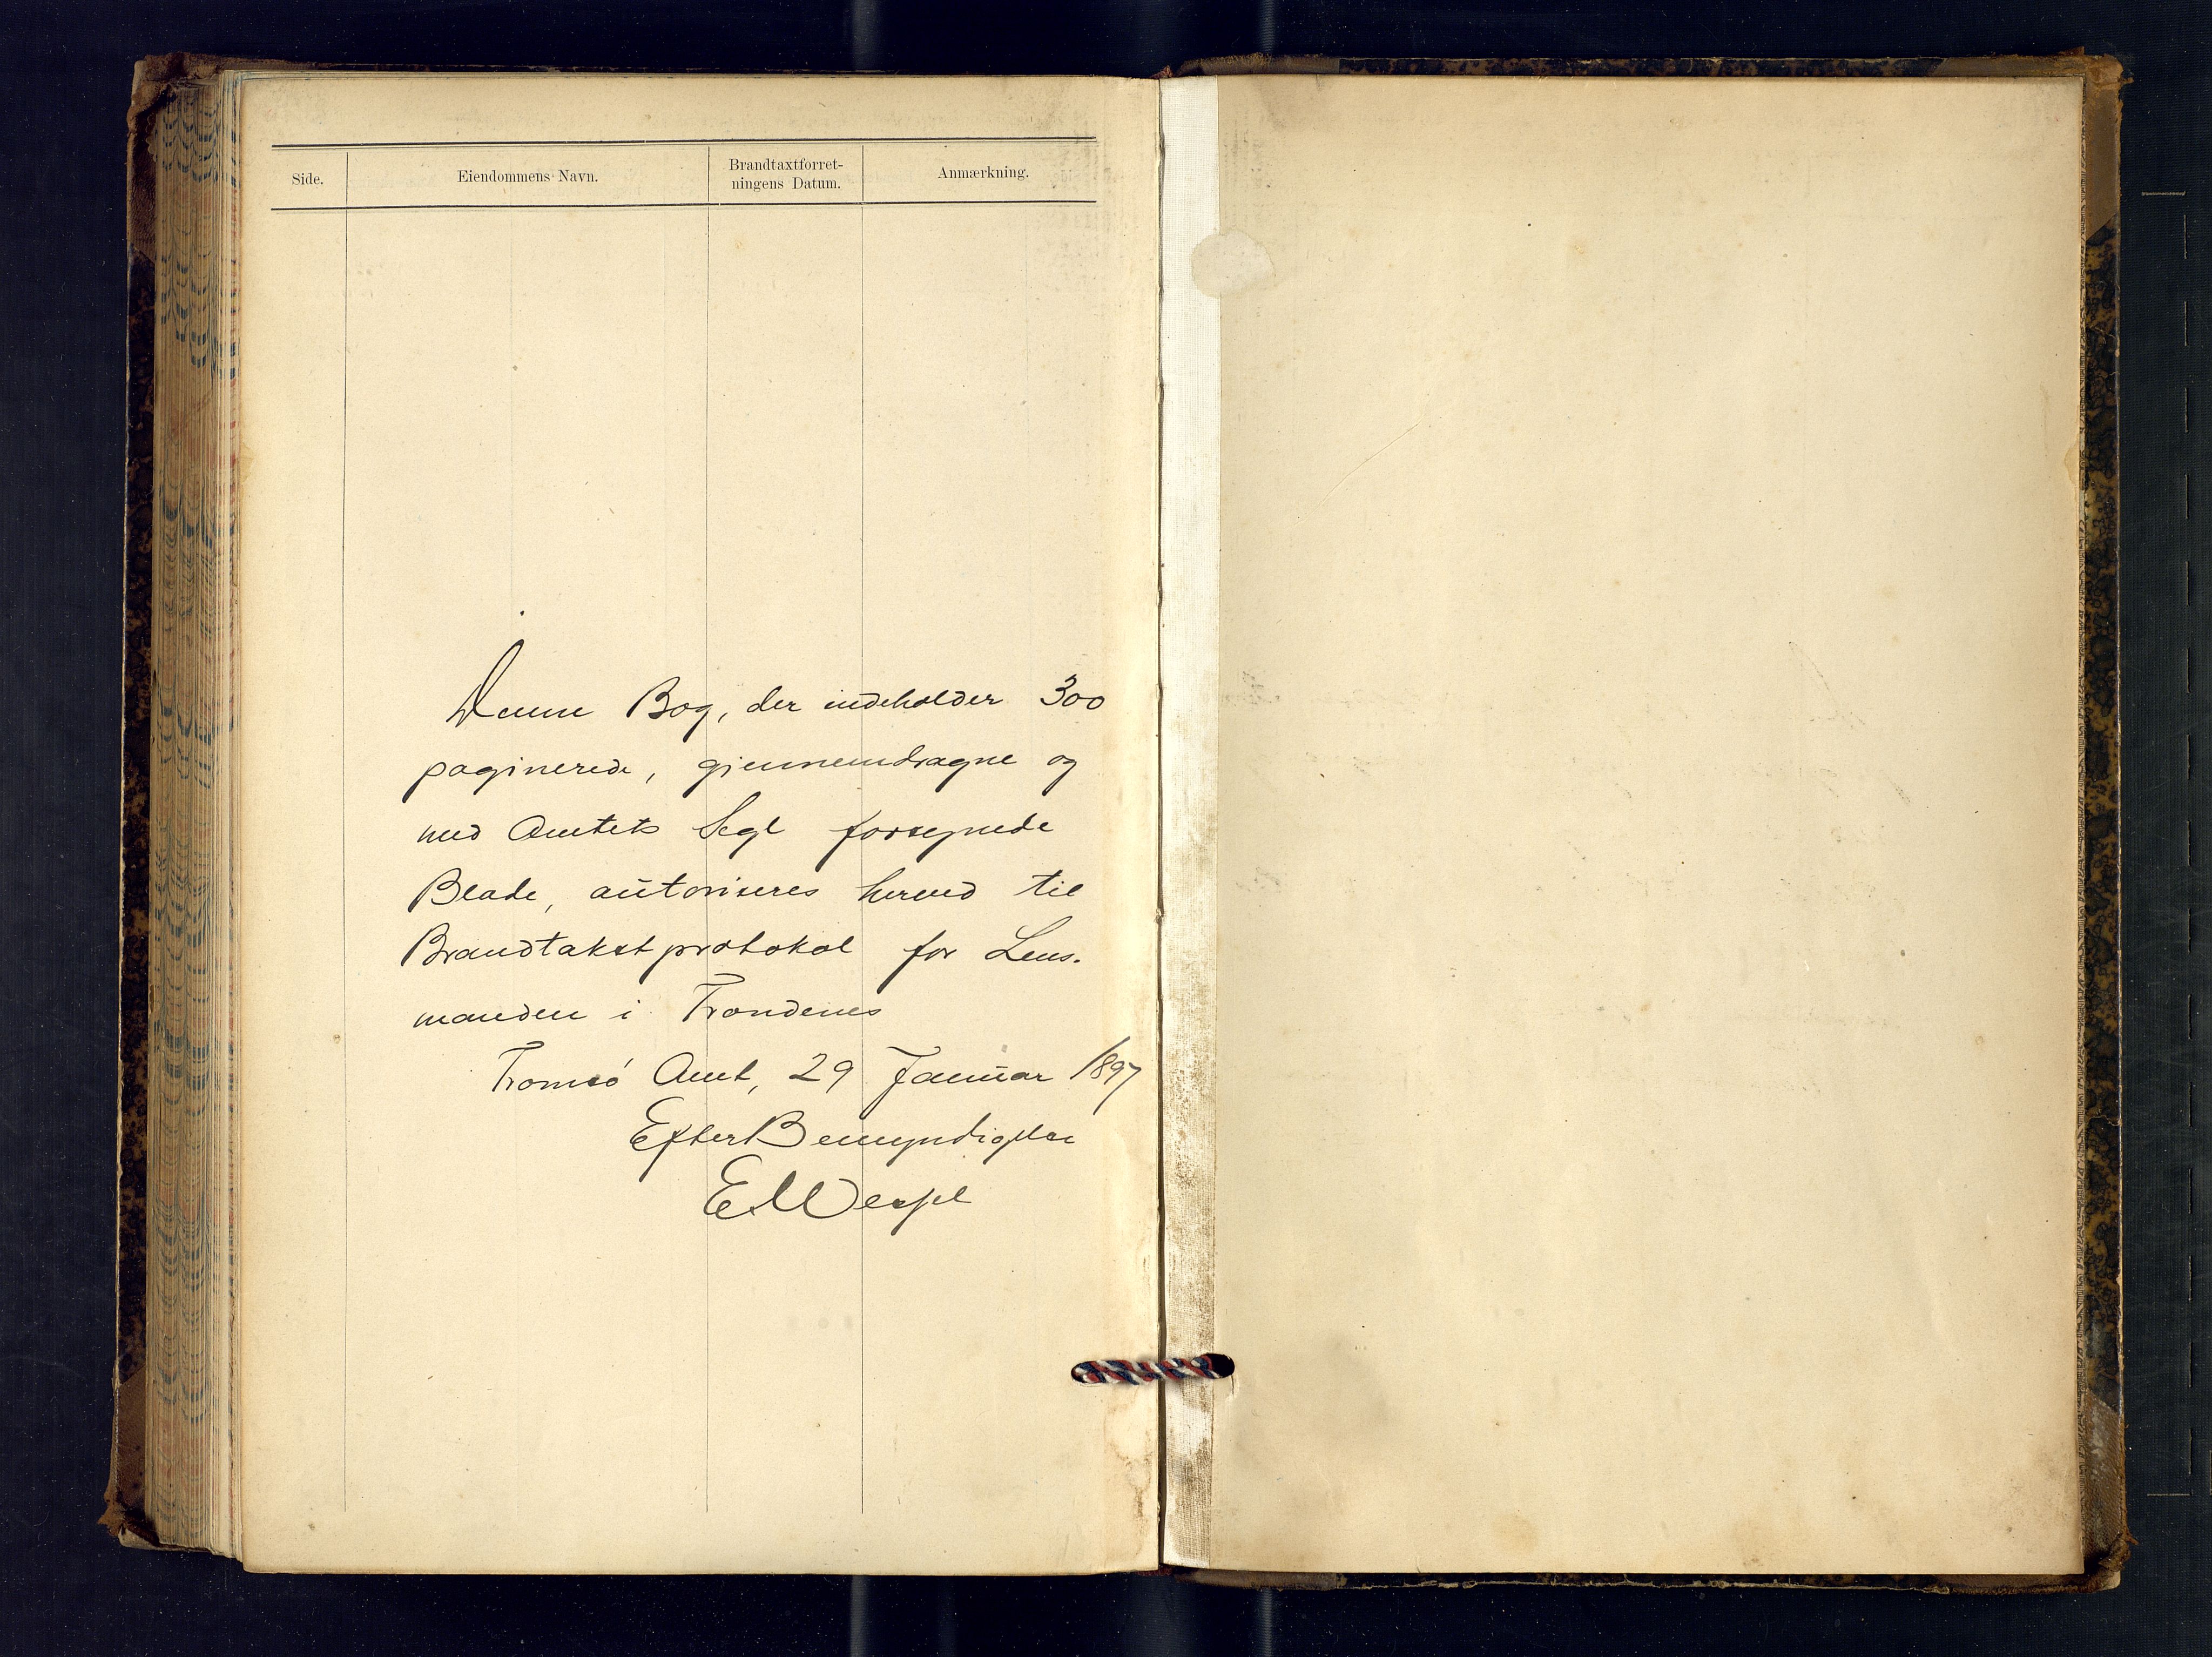 Side.
Eiendommens Navn.
Brandtaxtforret-
ningens Datum.
Anmærkning.
Denne Bog, der indeholder 300
paginerede, gjennemdragne og
med Amtets Segl forsynede
Blade, autoriseres herved til
Brandtakstprotokol for Lens-
manden i Trondenes
Tromsø Amt, 29 Januar 1897
Efter Bemyndigelse